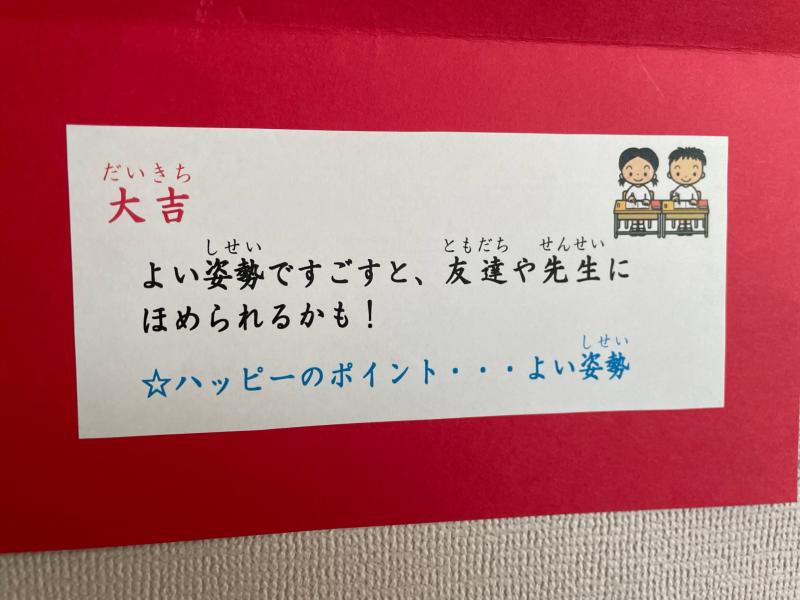 だいきち
大吉
しせい ともだち せんせい
よい姿勢ですごすと、友達や先生に
ほめられるかも！
しせい
☆ハッピーのポイント・・・よい姿勢